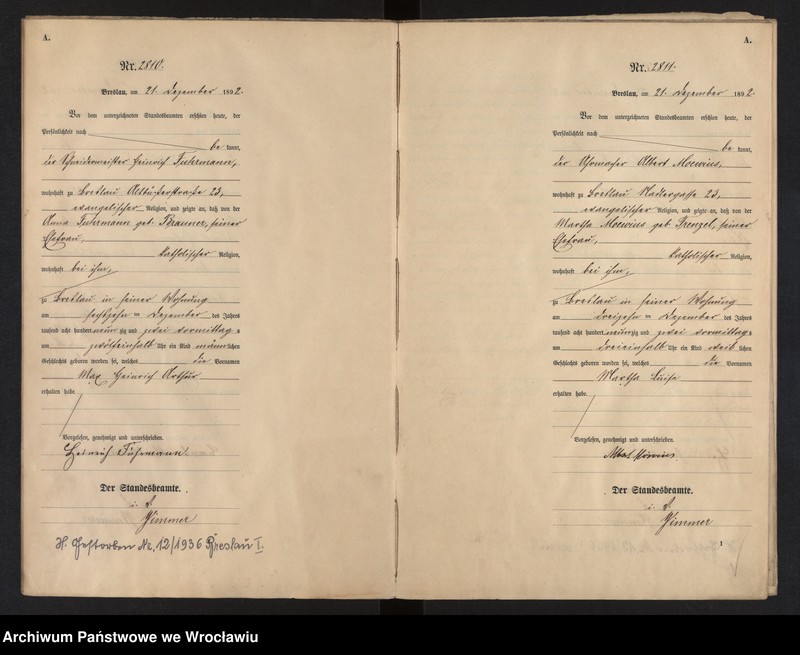 A.
Nr. 2810.
Breslau, am 21. Dezember 1892.
Vor dem unterzeichneten Standesbeamten erschien heute, der
Persönlichkeit nach
be kannt,
der Schneidermeister Heinrich Fuhrmann,
wohnhaft zu Breslau 23,
evangelischer Religion, und zeigte an, daß von der
Anna Fuhrmann geb. Brauner, seiner
Ehefrau,
katholischer Religion,
wohnhaft bei ihm,
zu Breslau in seiner Wohnung
am sechszehn = Dezember des Jahres
tausend acht hundert neun zig und zwei vormittags
um zwölfeinhalb Uhr ein Kind männlichen
Geschlechts geboren worden sei, welches die Vornamen
Max Heinrich Arthur
erhalten habe.
Vorgelesen, genehmigt und unterschrieben.
Heinrich Fuhrmann
Der Standesbeamte.
i. V.
Zimmer
H. Gestorben Nr. 12/1936 Breslau I.
A.
Nr. 2811.
Breslau, am 21. Dezember 1892.
Vor dem unterzeichneten Standesbeamten erschien heute, der
Persönlichkeit nach
be kannt,
der Uhrmacher Albert Moewius,
wohnhaft zu Breslau Nadlergasse 23,
evangelischer Religion, und zeigte an, daß von der
Martha Moewius geb. Frenzel, seiner
Ehefrau,
katholischer Religion,
wohnhaft bei ihm,
zu Breslau in seiner Wohnung
am dreizehn = Dezember des Jahres
tausend acht hundert neunzig und zwei vormittags
um dreieinhalb Uhr ein Kind weiblichen
Geschlechts geboren worden sei, welches die Vornamen
Martha Luise
erhalten habe.
Vorgelesen, genehmigt und unterschrieben.
Albert Möwius.
Der Standesbeamte.
i. V.
Zimmer
1
Archiwum Państwowe we Wrocławiu